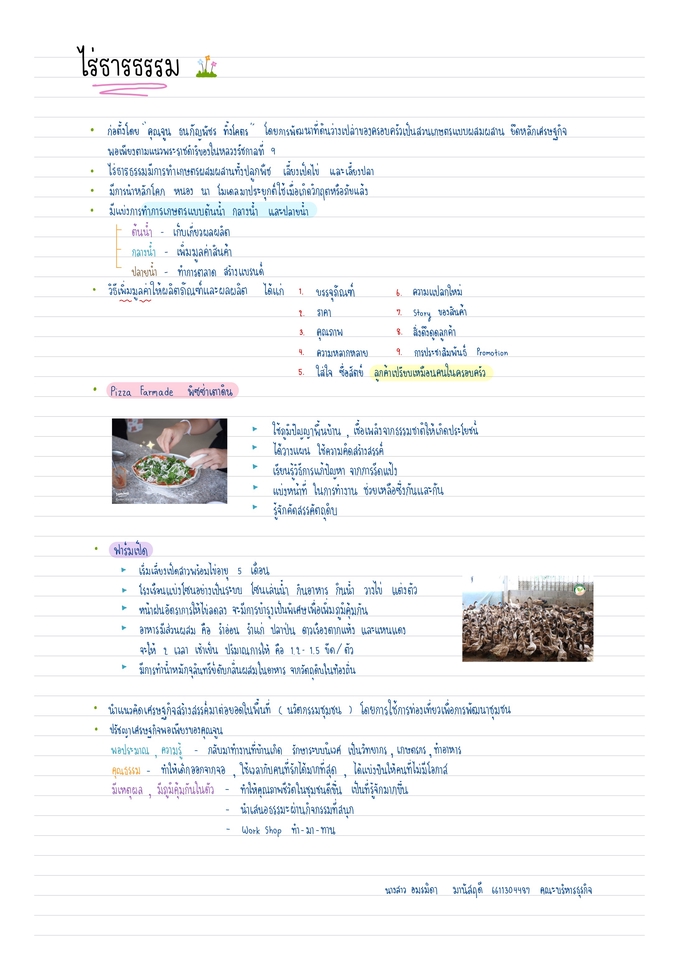 ไร่ธารธรรม
• ก่อตั้งโดย "คุณจูน ธนกัญพัชร ทั้งโคตร" โดยการพัฒนาที่ดินว่างเปล่าของครอบครัวเป็นสวนเกษตรแบบผสมผสาน ยึดหลักเศรษฐกิจ
พอเพียงตามแนวพระราชดำริของในหลวงรัชกาลที่ ๙
• ไร่ธารธรรมมีการทำเกษตรผสมผสานทั้งปลูกพืช เลี้ยงเป็ดไข่ และเลี้ยงปลา
• มีการนำหลักโคก หนอง นา โมเดลมาประยุกต์ใช้เมื่อเกิดวิกฤตหรือภัยแล้ง
• มีแบ่งการทำการเกษตรแบบต้นน้ำ กลางน้ำ และปลายน้ำ
ต้นน้ำ - เก็บเกี่ยวผลผลิต
กลางน้ำ - เพิ่มมูลค่าสินค้า
ปลายน้ำ - ทำการตลาด สร้างแบรนด์
• วิธีเพิ่มมูลค่าให้ผลิตภัณฑ์และผลผลิต ได้แก่ 1. บรรจุภัณฑ์ 6. ความแปลกใหม่
2. ราคา 7. Story ของสินค้า
3. คุณภาพ 8. สิ่งดึงดูดลูกค้า
4. ความหลากหลาย 9. การประชาสัมพันธ์ Promotion
5. ใส่ใจ ซื่อสัตย์ ลูกค้าเปรียบเหมือนคนในครอบครัว
• Pizza Farmade พิซซ่าเตาดิน
▸ ใช้ภูมิปัญญาพื้นบ้าน , เชื้อเพลิงจากธรรมชาติให้เกิดประโยชน์
▸ ได้วางแผน ใช้ความคิดสร้างสรรค์
▸ เรียนรู้วิธีการแก้ปัญหา จากการรีดแป้ง
▸ แบ่งหน้าที่ ในการทำงาน ช่วยเหลือซึ่งกันและกัน
▸ รู้จักคัดสรรวัตถุดิบ
• ฟาร์มเป็ด
▸ เริ่มเลี้ยงเป็ดสาวพร้อมไข่อายุ 5 เดือน
▸ โรงเรือนแบ่งโซนอย่างเป็นระบบ โซนเล่นน้ำ กินอาหาร กินน้ำ วางไข่ แต่งตัว
▸ หน้าฝนอัตราการให้ไข่ลดลง จะมีการบำรุงเป็นพิเศษเพื่อเพิ่มภูมิคุ้มกัน
▸ อาหารมีส่วนผสม คือ รำอ่อน รำแก่ ปลาป่น ดาวเรืองตากแห้ง และแหนแดง
จะให้ 2 เวลา เช้าเย็น ปริมาณการให้ คือ 1.2 - 1.5 ขีด / ตัว
▸ มีการทำน้ำหมักจุลินทรีย์ดับกลิ่นผสมในอาหาร จากวัตถุดิบในท้องถิ่น
• นำแนวคิดเศรษฐกิจสร้างสรรค์มาต่อยอดในพื้นที่ ( นวัตกรรมชุมชน ) โดยการใช้การท่องเที่ยวเพื่อการพัฒนาชุมชน
• ปรัชญาเศรษฐกิจพอเพียงของคุณจูน
พอประมาณ , ความรู้ - กลับมาทำงานที่บ้านเกิด รักษาระบบนิเวศ เป็นวิทยากร , เกษตรกร , ทำอาหาร
คุณธรรม - ทำให้เด็กออกจากจอ , ใช้เวลากับคนที่รักได้มากที่สุด , ได้แบ่งปันให้คนที่ไม่มีโอกาส
มีเหตุผล , มีภูมิคุ้มกันในตัว - ทำให้คุณภาพชีวิตในชุมชนดีขึ้น เป็นที่รู้จักมากขึ้น
- นำเสนอธรรมะผ่านกิจกรรมที่สนุก
- Work Shop ทำ - มา - ทาน
นางสาว อมรมิตา มานัสฤดี 6611304497 คณะบริหารธุรกิจ